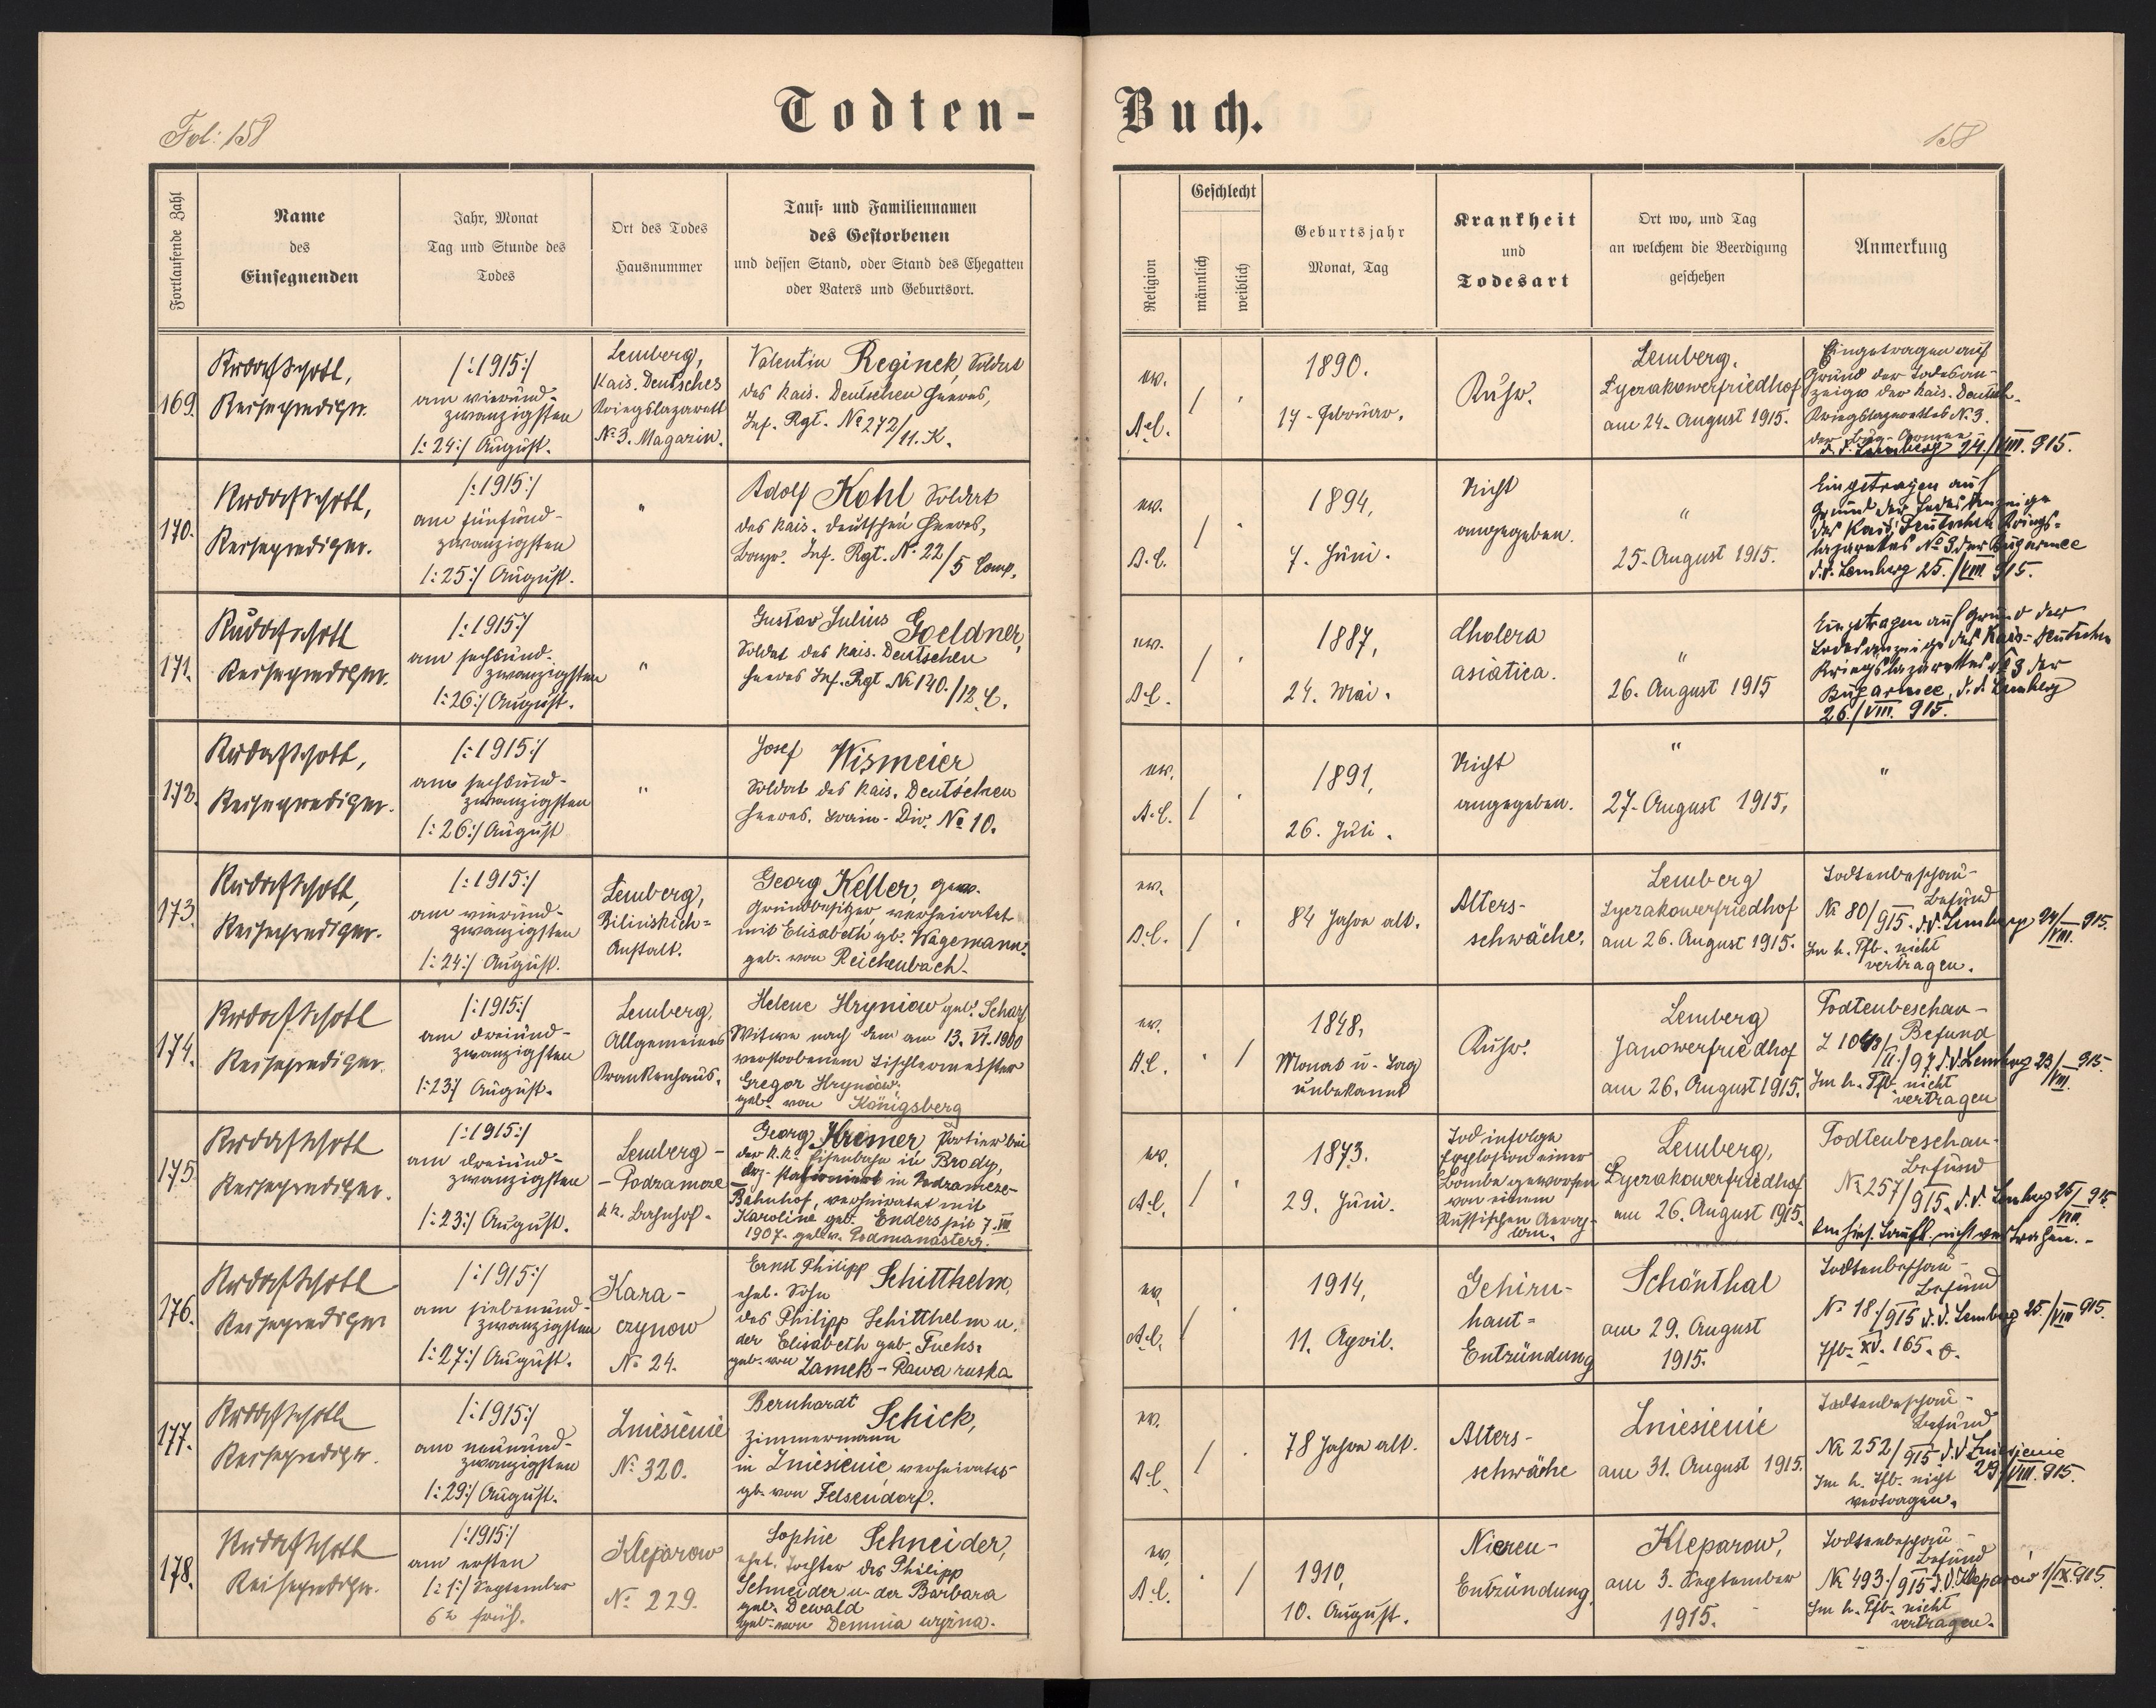 Fol: 158
Todten-
Buch.
158
Fortlaufende Zahl
Name
des
Einsegnenden
Jahr, Monat
Tag und Stunde des
Todes
Ort des Todes
Hausnummer
Tauf- und Familiennamen
des Gestorbenen
und dessen Stand, oder Stand des Ehegatten
oder Vaters und Geburtsort.
Religion
Geschlecht
männlich
weiblich
Geburtsjahr
Monat, Tag
Krankheit
und
Todesart
Ort wo, und Tag
an welchem die Beerdigung
geschehen
Anmerkung
169.
Reiseprediger.
/:1915:/
am vierund-
zwanzigsten
/:24:/ August.
Lemberg,
Kais. Deutsches
Kriegslazarett
№ 3. Magazin.
Valentin Reginek, Soldat
des Kais. Deutschen Heeres,
Inf. Rgt. № 272/11. K.
ev.
A.C.
/
1890.
17. Februar.
Ruhr.
Lemberg.
Lyczakowerfriedhof
am 24. August 1915.
Eingetragen auf
Grund der Todesan-
zeige des Kais. Deutsch.
Kriegslazarettes № 3.
der Bug-Armee
d. d. Lemberg 24./VIII. 915.
170.
Reiseprediger.
/:1915:/
am fünfund-
zwanzigsten
/:25:/ August.
"
Adolf Kohl Soldat
des Kais. Deutschen Heeres,
Inf. Rgt. № 22/5 Comp.
ev.
A.C.
/
1894,
7. Juni.
Nicht
angegeben.
"
25. August 1915.
Eingetragen auf
Grund der Todesanzeige
des Kais. Deutschen Kriegs-
lazarettes № 3 der Bugarmee
d. d. Lemberg 25./VIII 915.
171.
Reiseprediger.
/:1915:/
am sechsund-
zwanzigsten
/:26:/ August.
"
Gustav Julius Goeldner,
Soldat des Kais. Deutschen
Heeres Inf. Rgt № 140./12. C.
ev.
A.C.
/
1887,
24. Mai.
Cholera
asiatica.
"
26. August 1915
Eingetragen auf Grund der
Todesanzeige des Kais. Deutschen
Kriegslazarettes № 3 der
Bugarmee, d. d. Lemberg
26./VIII. 915.
172.
Reiseprediger.
/:1915:/
am sechsund-
zwanzigsten
/:26:/ August
"
Josef Wismeier
Soldat des Kais. Deutschen
Heeres. Train-Div. № 10.
ev.
A.C.
/
1891,
26. Juli.
Nicht
angegeben.
"
27. August 1915.
"
173.
Reiseprediger.
/:1915:/
am vierund-
zwanzigsten
/:24:/ August.
Lemberg,
Bilinskich-
Anstalt.
Georg Keller, gew.
Grundbesitzer, verheiratet
mit Elisabeth gb. Wagemann.
geb. von Reichenbach.
ev.
A.C.
/
84 Jahre alt.
Alters-
schwäche.
Lemberg
Lyczakowerfriedhof
am 26. August 1915.
Todtenbeschau-
Befund
№ 80/915. d.d. Lemberg 24/VIII. 915.
Im h. Tfb. nicht
vertragen.
174.
Reiseprediger.
/:1915:/
am dreiund-
zwanzigsten
/:23:/ August.
Lemberg,
Allgemeines
Krankenhaus.
Helene Hryniow geb. Scharf
Witwe nach dem am 13. VI. 1900
verstorbenem Tischlermeister
Gregor Hryniow.
geb. von Königsberg
ev.
A.C.
/
1848,
Monat u. Tag
unbekannt
Ruhr.
Lemberg
Janowerfriedhof
am 26. August 1915.
Todtenbeschau-
Befund
d.d. Lemberg 23/VIII. 915.
Im h. Tfb. nicht
vertragen
175
Reiseprediger.
/:1915:/
am dreiund-
zwanzigsten
/:23:/ August.
Lemberg-
-Podzamcze
k.k. Bahnhof.
Georg Kremer, Portier bei
der k.k. Eisenbahn in Brody,
stationiert in Podzamcze-
Bahnhof, verheiratet mit
Karoline geb. Enders seit 7. VII.
1907. geb. v. Podmanasterz.
ev.
A.C.
/
1873.
29. Juni.
Tod infolge
Explosion einer
Bombe geworfen
von einem
Russischen Aerop-
lan.
Lemberg,
Lyczakowerfriedhof
am 26. August 1915.
Todtenbeschau-
Befund
№ 257/915. d. d. Lemberg 25/VIII 915
Im hies. Taufb. nicht vertragen.-
176.
Reiseprediger
/:1915:/
am siebenund-
zwanzigsten
/:27:/ August.
Kara-
czynow
№ 24.
Ernst Philipp Schitthelm,
ehel. Sohn
des Philipp Schitthelm u.
der Elisabeth geb. Fuchs.
geb. von Zamek-Rawa ruska
ev.
A.C.
/
1914,
11. April.
Gehirn-
haut-
Entzündung
Schönthal
am 29. August
1915.
Todtenbeschau-
Befund
№ 18./915 d. d. Lemberg 25./VIII 915.
Tfb. XV. 165.
177.
Reiseprediger.
/:1915:/
am neunund-
zwanzigsten
/:29:/ August.
Zniesienie
№ 320.
Bernhardt Schick,
Zimmermann
in Zniesienie verheiratet
gb. von Felsendorf.
ev.
A.C.
/
78 Jahre alt.
Alters-
schwäche
Zniesienie
am 31. August 1915.
Todtenbeschau-
Befund
№ 252/915 d. d. Zniesienie
29/VIII. 915.
Im h. Tfb. nicht
vertragen.
178.
Reiseprediger.
/:1915:/
am ersten
/:1:/ September
6 h früh.
Kleparow
№ 229.
Sophie Schneider,
ehel. Tochter des Philipp
Schneider u. der Barbara
geb. Dewald
geb. von Demnia wyżna.
ev.
A.C.
/
1910,
10. August.
Nieren-
Entzündung.
Kleparow,
am 3. September
1915.
Todtenbeschau-
Befund
№ 493./915 d. d. Kleparow 1/IX. 915.
Im h. Tfb. nicht
vertragen.